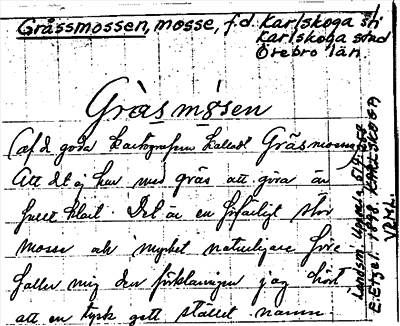 Gråssmossen, mosse, f.d. Karlskoga sn
Karlskoga stad
Örebro län.
Gràsmósen
(af d. goda kartografen kallad Gräsmossen)
Att det ej har med gräs att göra är
fullt klart. Det är en förfärligt stor
mosse och mycket naturligare före
faller mig den förklaringen jag hört
att en tysk gett stället namn.
Landsm. Uppsala 519:
E. Etzel. 1898 KARLSKOGA